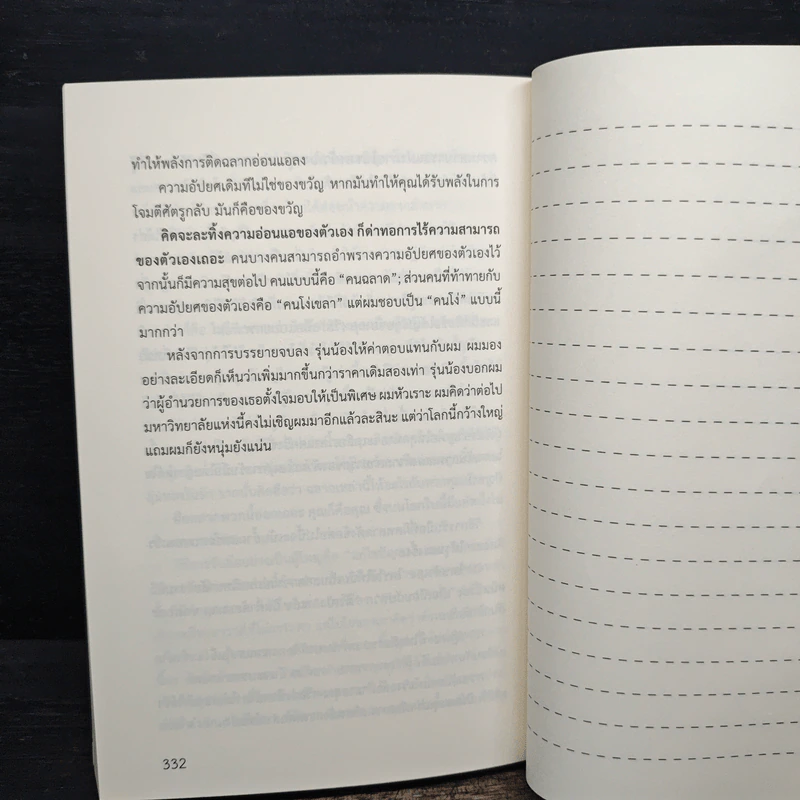 ทำให้พลังการติดฉลากอ่อนแอลง
ความอัปยศเดิมทีไม่ใช่ของขวัญ หากมันทำให้คุณได้รับพลังในการ
โจมตีศัตรูกลับ มันก็คือของขวัญ
คิดจะละทิ้งความอ่อนแอของตัวเอง ก็ด่าทอการไร้ความสามารถ
ของตัวเองเถอะ คนบางคนสามารถอำพรางความอัปยศของตัวเองไว้
จากนั้นก็มีความสุขต่อไป คนแบบนี้คือ “คนฉลาด”; ส่วนคนที่ท้าทายกับ
ความอัปยศของตัวเองคือ “คนโง่เขลา” แต่ผมชอบเป็น “คนโง่” แบบนี้
มากกว่า
หลังจากการบรรยายจบลง รุ่นน้องให้ค่าตอบแทนกับผม ผมมอง
อย่างละเอียดก็เห็นว่าเพิ่มมากขึ้นกว่าราคาเดิมสองเท่า รุ่นน้องบอกผม
ว่าผู้อำนวยการของเธอตั้งใจมอบให้เป็นพิเศษ ผมหัวเราะ ผมคิดว่าต่อไป
มหาวิทยาลัยแห่งนี้คงไม่เชิญผมมาอีกแล้วละสินะ แต่ว่าโลกนี้กว้างใหญ่
แถมผมก็ยังหนุ่มยังแน่น
332